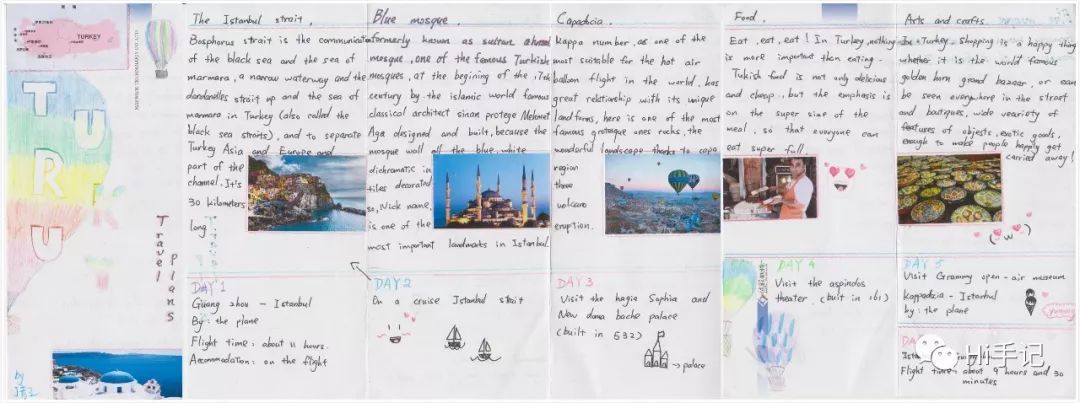 TURKEY
TURKEY
Travel Plans
by
The Istanbul strait.
Bosphorus strait is the communication
of the black sea and the sea of
marmara, a narrow waterway and the
dardanelles strait up and the sea of
marmara in Turkey (also called the
black sea straits), and to separate
Turkey Asia and Europe and
part of the
channel. It's
30 kilometers
long
DAY 1
Guang zhou - Istanbul
By: the plane
Flight time: about 11 hours.
Accommodation: on the flight
Blue mosque.
formerly known as sultan ahmed
mosque, one of the famous Turkish
mosques, at the begining of the 17th
century by the islamic world famous
classical architect sinan protege Mehmet
Aga designed and built, because the
mosque wall all the blue, white
dichromatic in
tiles decorated
so, Nick name,
is one of the
most important landmarks in Istanbul
DAY2
On a cruise Istanbul strait
Capadocia.
Kappa number, as one of the
most suitable for the hot air
balloon flight in the world, has
great relationship with its unique
landforms, here is one of the most
famous grotesque ones rocks, the
wonderful landscape thanks to capa
region
three
volcano
eruption.
DAY 3
Visit the hagia Sophia and
New doma bache palace
(built in 532)
→ palace
Food.
Eat, eat, eat! In Turkey, nothing
is more important then eating.
Tukish food is not only delicious
and cheap, but the emphasis is
on the super size of the
meal, so that everyone can
eat super full.
DAY 4
Visit the aspindos
theater. (built in 161)
Arts and crafts.
In Turkey, shopping is a happy thing
whether it is the world famous
golden horn grand bazaar, or can
be seen everywhere in the street
and boutiques, wide veariety of
features of objests, exotic goods,
enough to make people happily get
carried away!
DAY 5
Visit Grammy open-air museum
Kappadzia - Istanbul
by: the plane
Yummy
Flight time: about 9 hours and 30
minutes
Hi手记